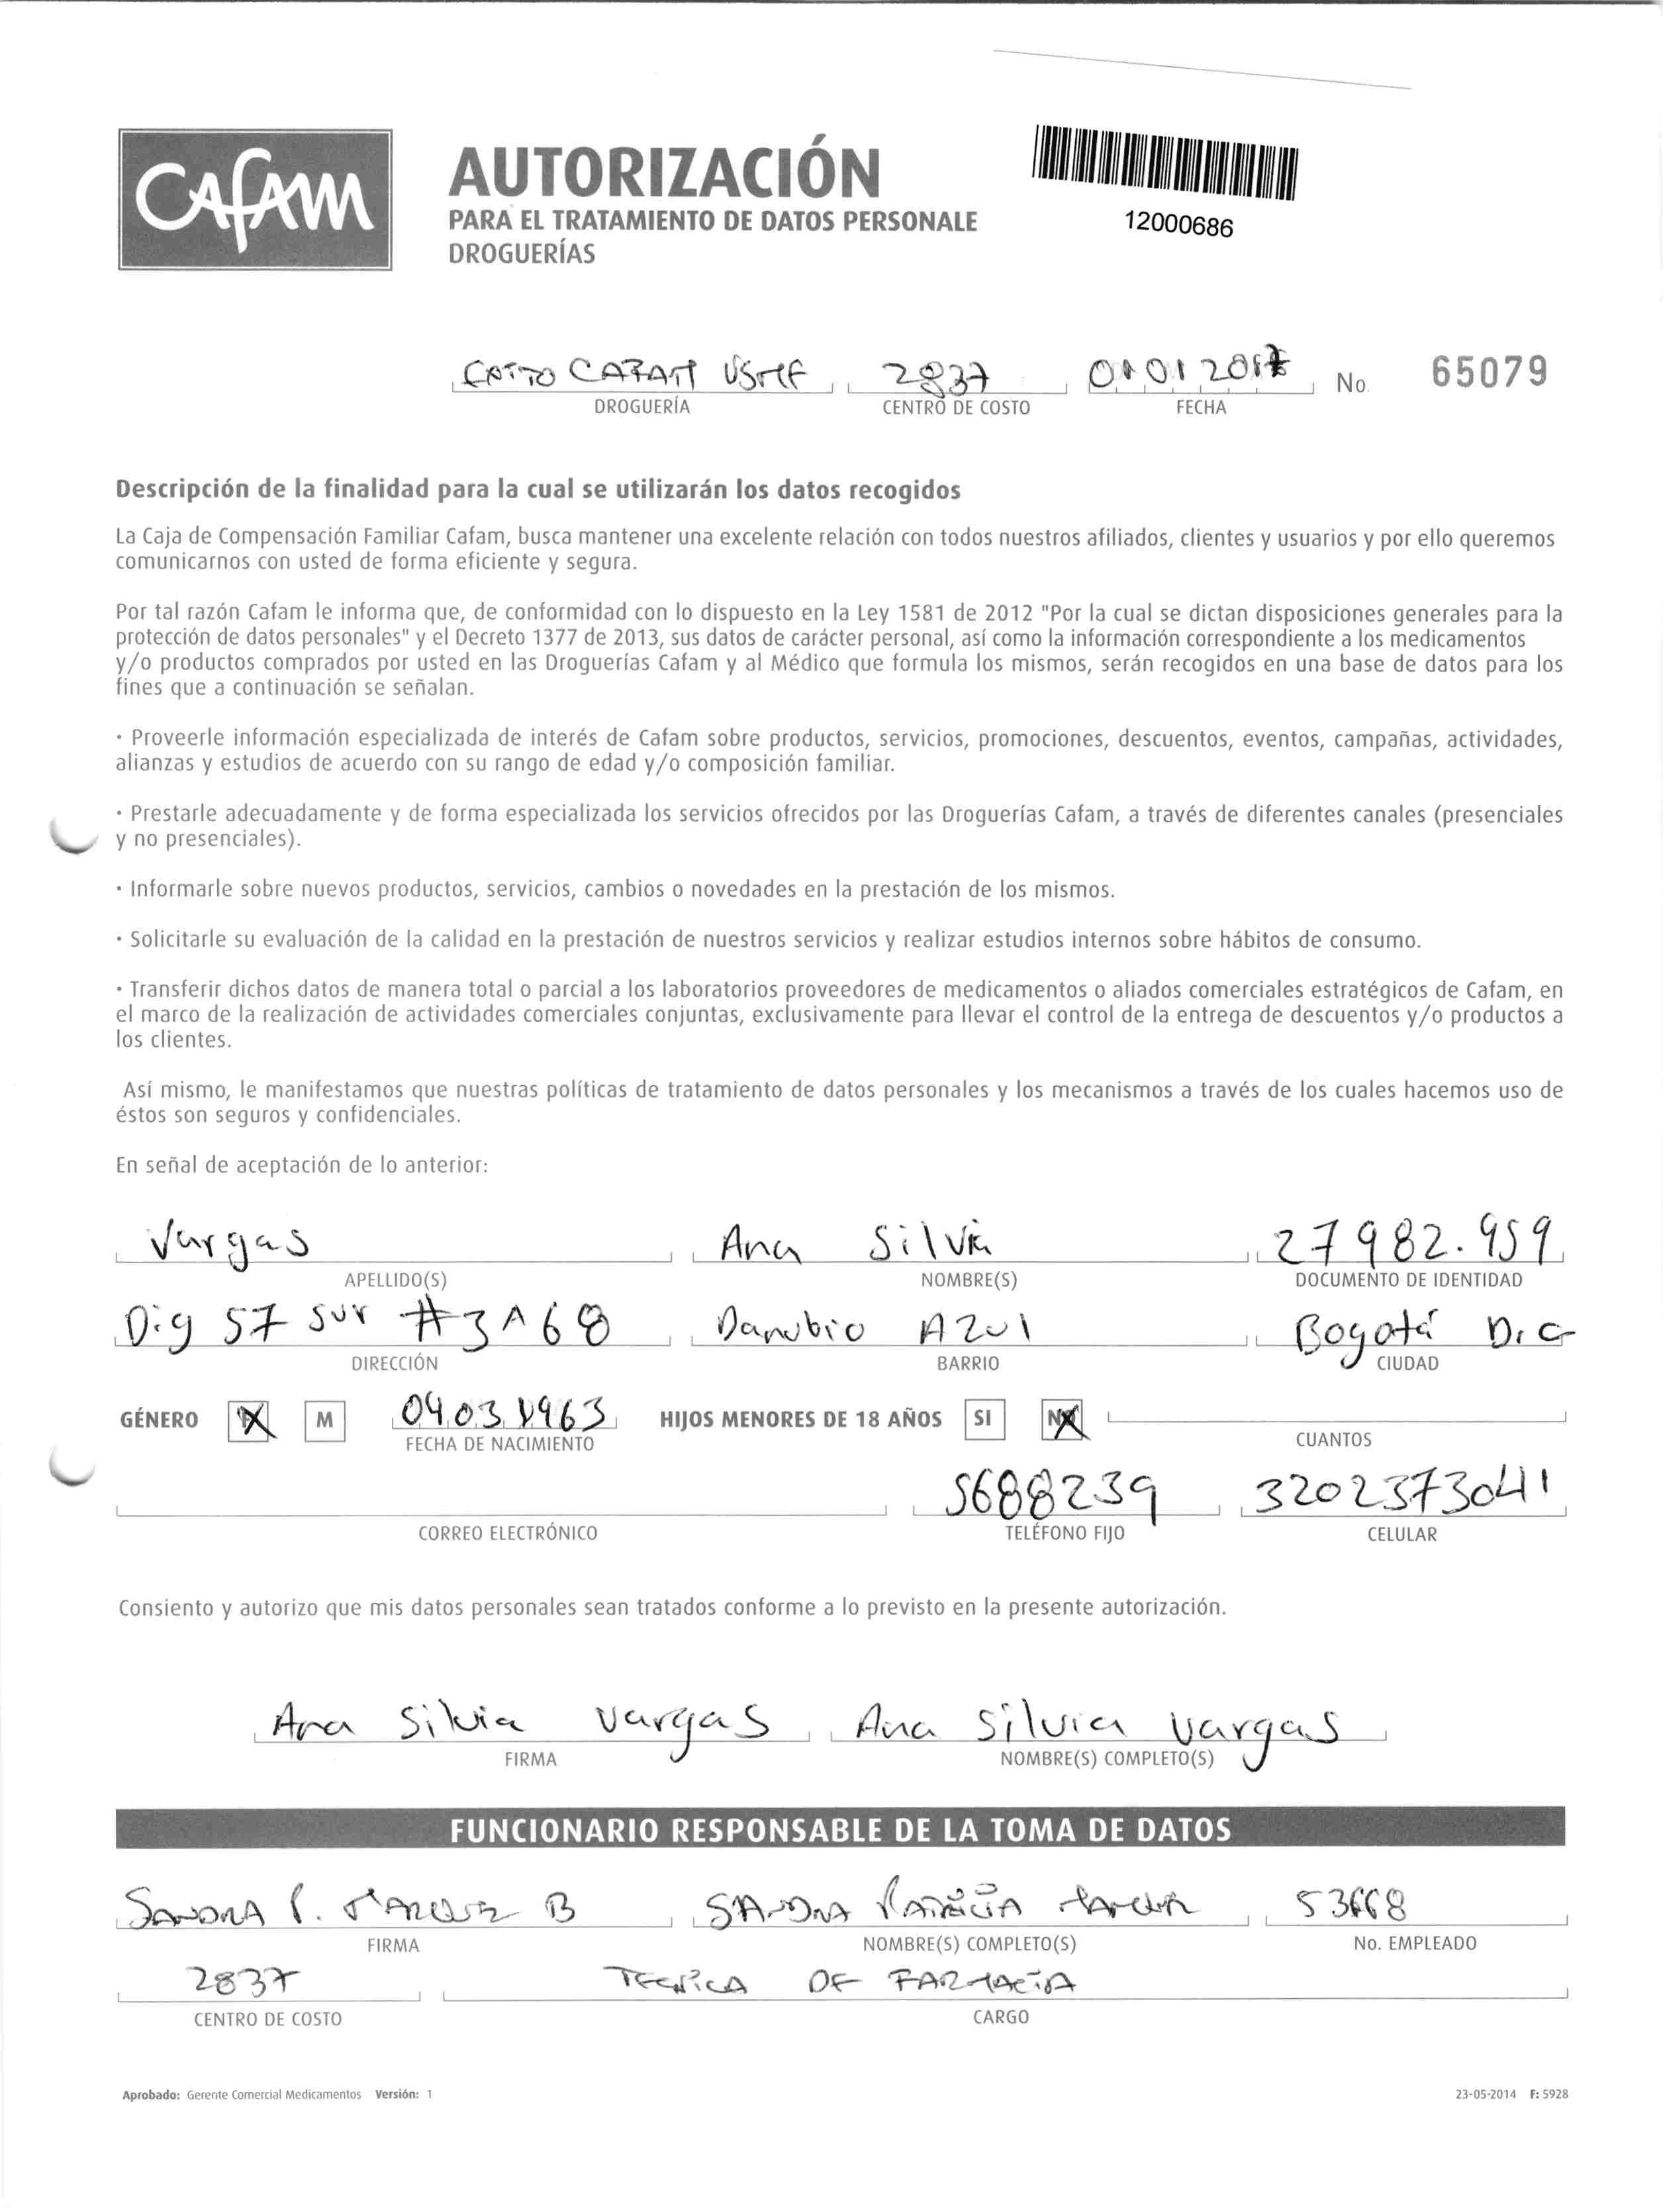 CAFAM
AUTORIZACIÓN
PARA EL TRATAMIENTO DE DATOS PERSONALE
DROGUERÍAS
12000686
CAFAM 2837 No. 65079
DROGUERÍA CENTRO DE COSTO FECHA
Descripción de la finalidad para la cual se utilizarán los datos recogidos
La Caja de Compensación Familiar Cafam, busca mantener una excelente relación con todos nuestros afiliados, clientes y usuarios y por ello queremos
comunicarnos con usted de forma eficiente y segura.
Por tal razón Cafam le informa que, de conformidad con lo dispuesto en la Ley 1581 de 2012 "Por la cual se dictan disposiciones generales para la
protección de datos personales" y el Decreto 1377 de 2013, sus datos de carácter personal, así como la información correspondiente a los medicamentos
y/o productos comprados por usted en las Droguerías Cafam y al Médico que formula los mismos, serán recogidos en una base de datos para los
fines que a continuación se señalan.
· Proveerle información especializada de interés de Cafam sobre productos, servicios, promociones, descuentos, eventos, campañas, actividades,
alianzas y estudios de acuerdo con su rango de edad y/o composición familiar.
· Prestarle adecuadamente y de forma especializada los servicios ofrecidos por las Droguerías Cafam, a través de diferentes canales (presenciales
y no presenciales).
· Informarle sobre nuevos productos, servicios, cambios o novedades en la prestación de los mismos.
· Solicitarle su evaluación de la calidad en la prestación de nuestros servicios y realizar estudios internos sobre hábitos de consumo.
· Transferir dichos datos de manera total o parcial a los laboratorios proveedores de medicamentos o aliados comerciales estratégicos de Cafam, en
el marco de la realización de actividades comerciales conjuntas, exclusivamente para llevar el control de la entrega de descuentos y/o productos a
los clientes.
Así mismo, le manifestamos que nuestras políticas de tratamiento de datos personales y los mecanismos a través de los cuales hacemos uso de
éstos son seguros y confidenciales.
En señal de aceptación de lo anterior:
Vargas Ana Silvia 27982.959
APELLIDO(S) NOMBRE(S) DOCUMENTO DE IDENTIDAD
Dig 57 sur #3A68 Danubio Azul Bogotá D.C
DIRECCIÓN BARRIO CIUDAD
GÉNERO X M 04 03 1963 HIJOS MENORES DE 18 AÑOS SI NO
FECHA DE NACIMIENTO CUANTOS
5688239 3202373041
CORREO ELECTRÓNICO TELÉFONO FIJO CELULAR
Consiento y autorizo que mis datos personales sean tratados conforme a lo previsto en la presente autorización.
Ana Silvia Vargas Ana Silvia Vargas
FIRMA NOMBRE(S) COMPLETO(S)
FUNCIONARIO RESPONSABLE DE LA TOMA DE DATOS
SANDRA P. B SANDRA 53668
FIRMA NOMBRE(S) COMPLETO(S) No. EMPLEADO
2837 TECNICA DE FARMACIA
CENTRO DE COSTO CARGO
Aprobado: Gerente Comercial Medicamentos Versión: 1 23-05-2014 F: 5928